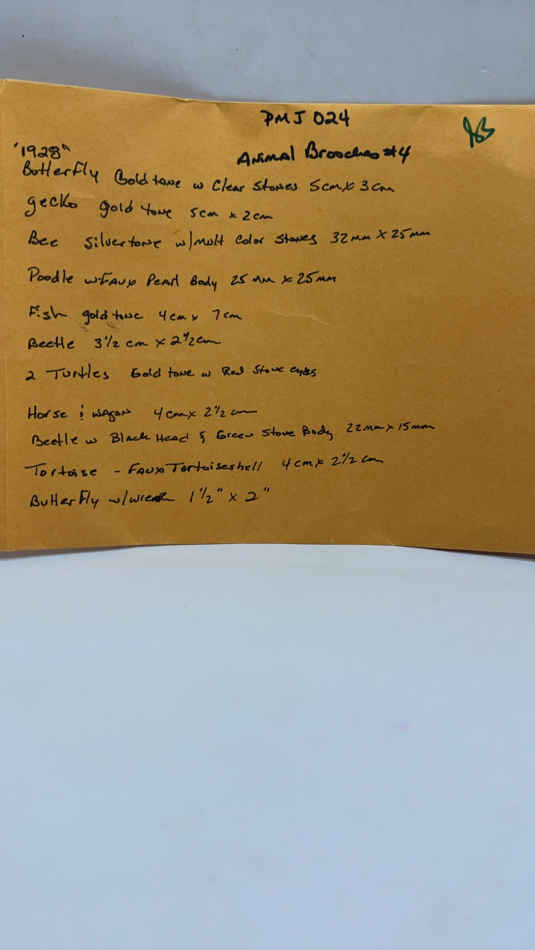 PMJ 024
Animal Brooches #4
"1928"
Butterfly Gold tone w Clear Stones 5cm x 3cm
gecko gold tone 5cm x 2cm
Bee Silvertone w/mult Color Stones 32mm x 25mm
Poodle w Faux Pearl Body 25mm x 25mm
Fish gold tone 4cm x 7cm
Beetle 3 1/2 cm x 2 1/2 cm
2 Turtles Gold tone w Red Stone eyes
Horse & wagon 4cm x 2 1/2 cm
Beetle w Black Head & Green Stone Body 22mm x 15mm
Tortoise - Faux Tortoiseshell 4cm x 2 1/2 cm
Butterfly 1 1/2" x 2"